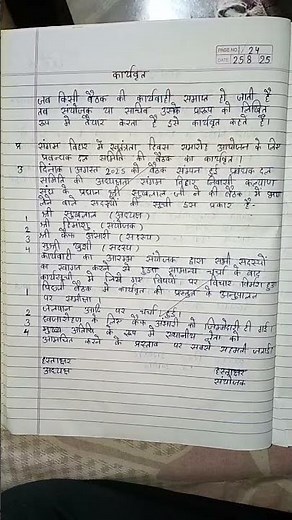 PAGE NO.: 24
DATE: 25 8 25
कार्यवृत
जब किसी बैठक की कार्यवाही समाप्त हो जाती है
तब संयोजक या सचिव उसके प्रारूप को लिखित
रूप में तैयार करता है इसे कार्यवृत कहते हैं।
प्र संगम विहार में स्वतंत्रता दिवस समारोह आयोजन के लिए
प्रबन्धक दल समिति की बैठक का कार्यवृत।
उ दिनांक 1 अगस्त 2025 को बैठक सम्पन्न हुई प्रबंधक दल
समिति की अध्यक्षता संगम विहार निवासी कल्याण
संघ के प्रधान श्री सुखलाल जी ने की बैठक में भाग
लेने वाले सदस्यों की सूची इस प्रकार है-
1 श्री सुखलाल (अध्यक्ष)
2 श्री हिमांशु (संयोजक)
3 श्री कैफ अंसारी (सदस्य)
4 सुश्री खुशी (सदस्य)
कार्यवाही का आरम्भ संयोजक द्वारा सभी सदस्यों
का स्वागत करने से हुआ सामान्य चर्चा के बाद
कार्यसूची में लिखे गए विषयों पर विचार विमर्श हुआ
1 पिछली बैठक में कार्यवृत की प्रस्तुत के अनुपालन
पर समीक्षा
2 जलपान आदि पर चर्चा हुई
3 ध्वजारोहण के लिए कैफ अंसारी को जिम्मेदारी दी गई।
4 मुख्य अतिथि के रूप में स्थानीय नेता को
आमंत्रित करने के प्रस्ताव पर सबने सहमती जताई
हस्ताक्षर हस्ताक्षर
अध्यक्ष संयोजक